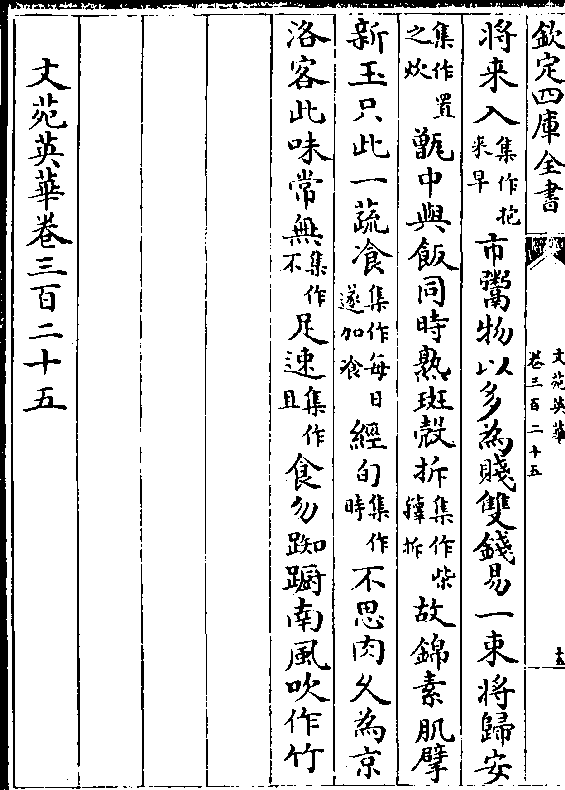 欽定四庫全書
文苑英華
卷三百二十五
十五
将来入集作抱来早市鬻物以多為賤雙錢易一束将歸安
集作置之炊甑中與飯同時熟斑殻拆集作柴籜拆故錦素肌擘
新玉只此一蔬飡集作每日遂加飡經旬集作時不思肉久為京
洛客此味常無集作不足速集作且食勿踟蹰南風吹作竹
文苑英華卷三百二十五